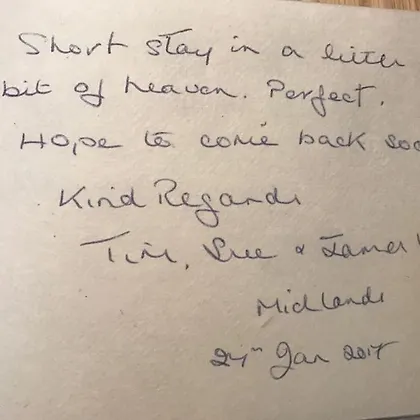 Short stay in a little
bit of heaven. Perfect.
Hope to come back soo
Kind Regards
Tim, Sue & James
Midlands
24th Jan 2017